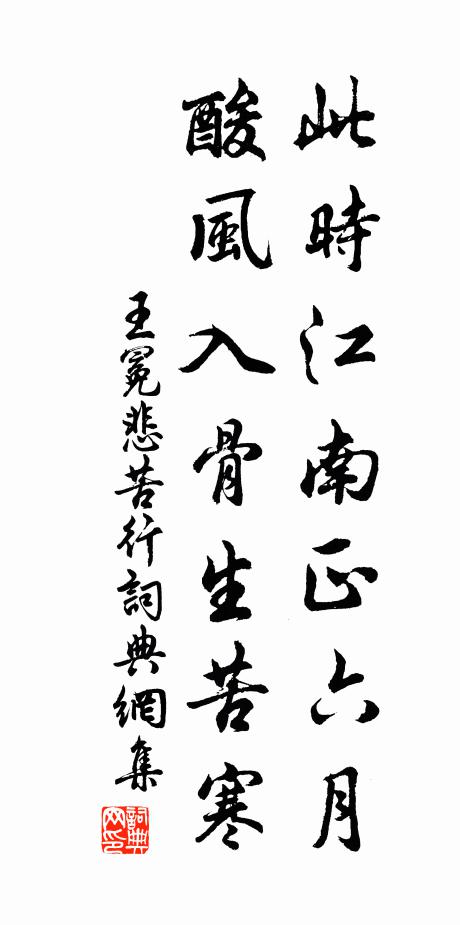 此時江南正六月
酸風入骨生苦寒
王冕悲苦行詞典網集
詞典
网印